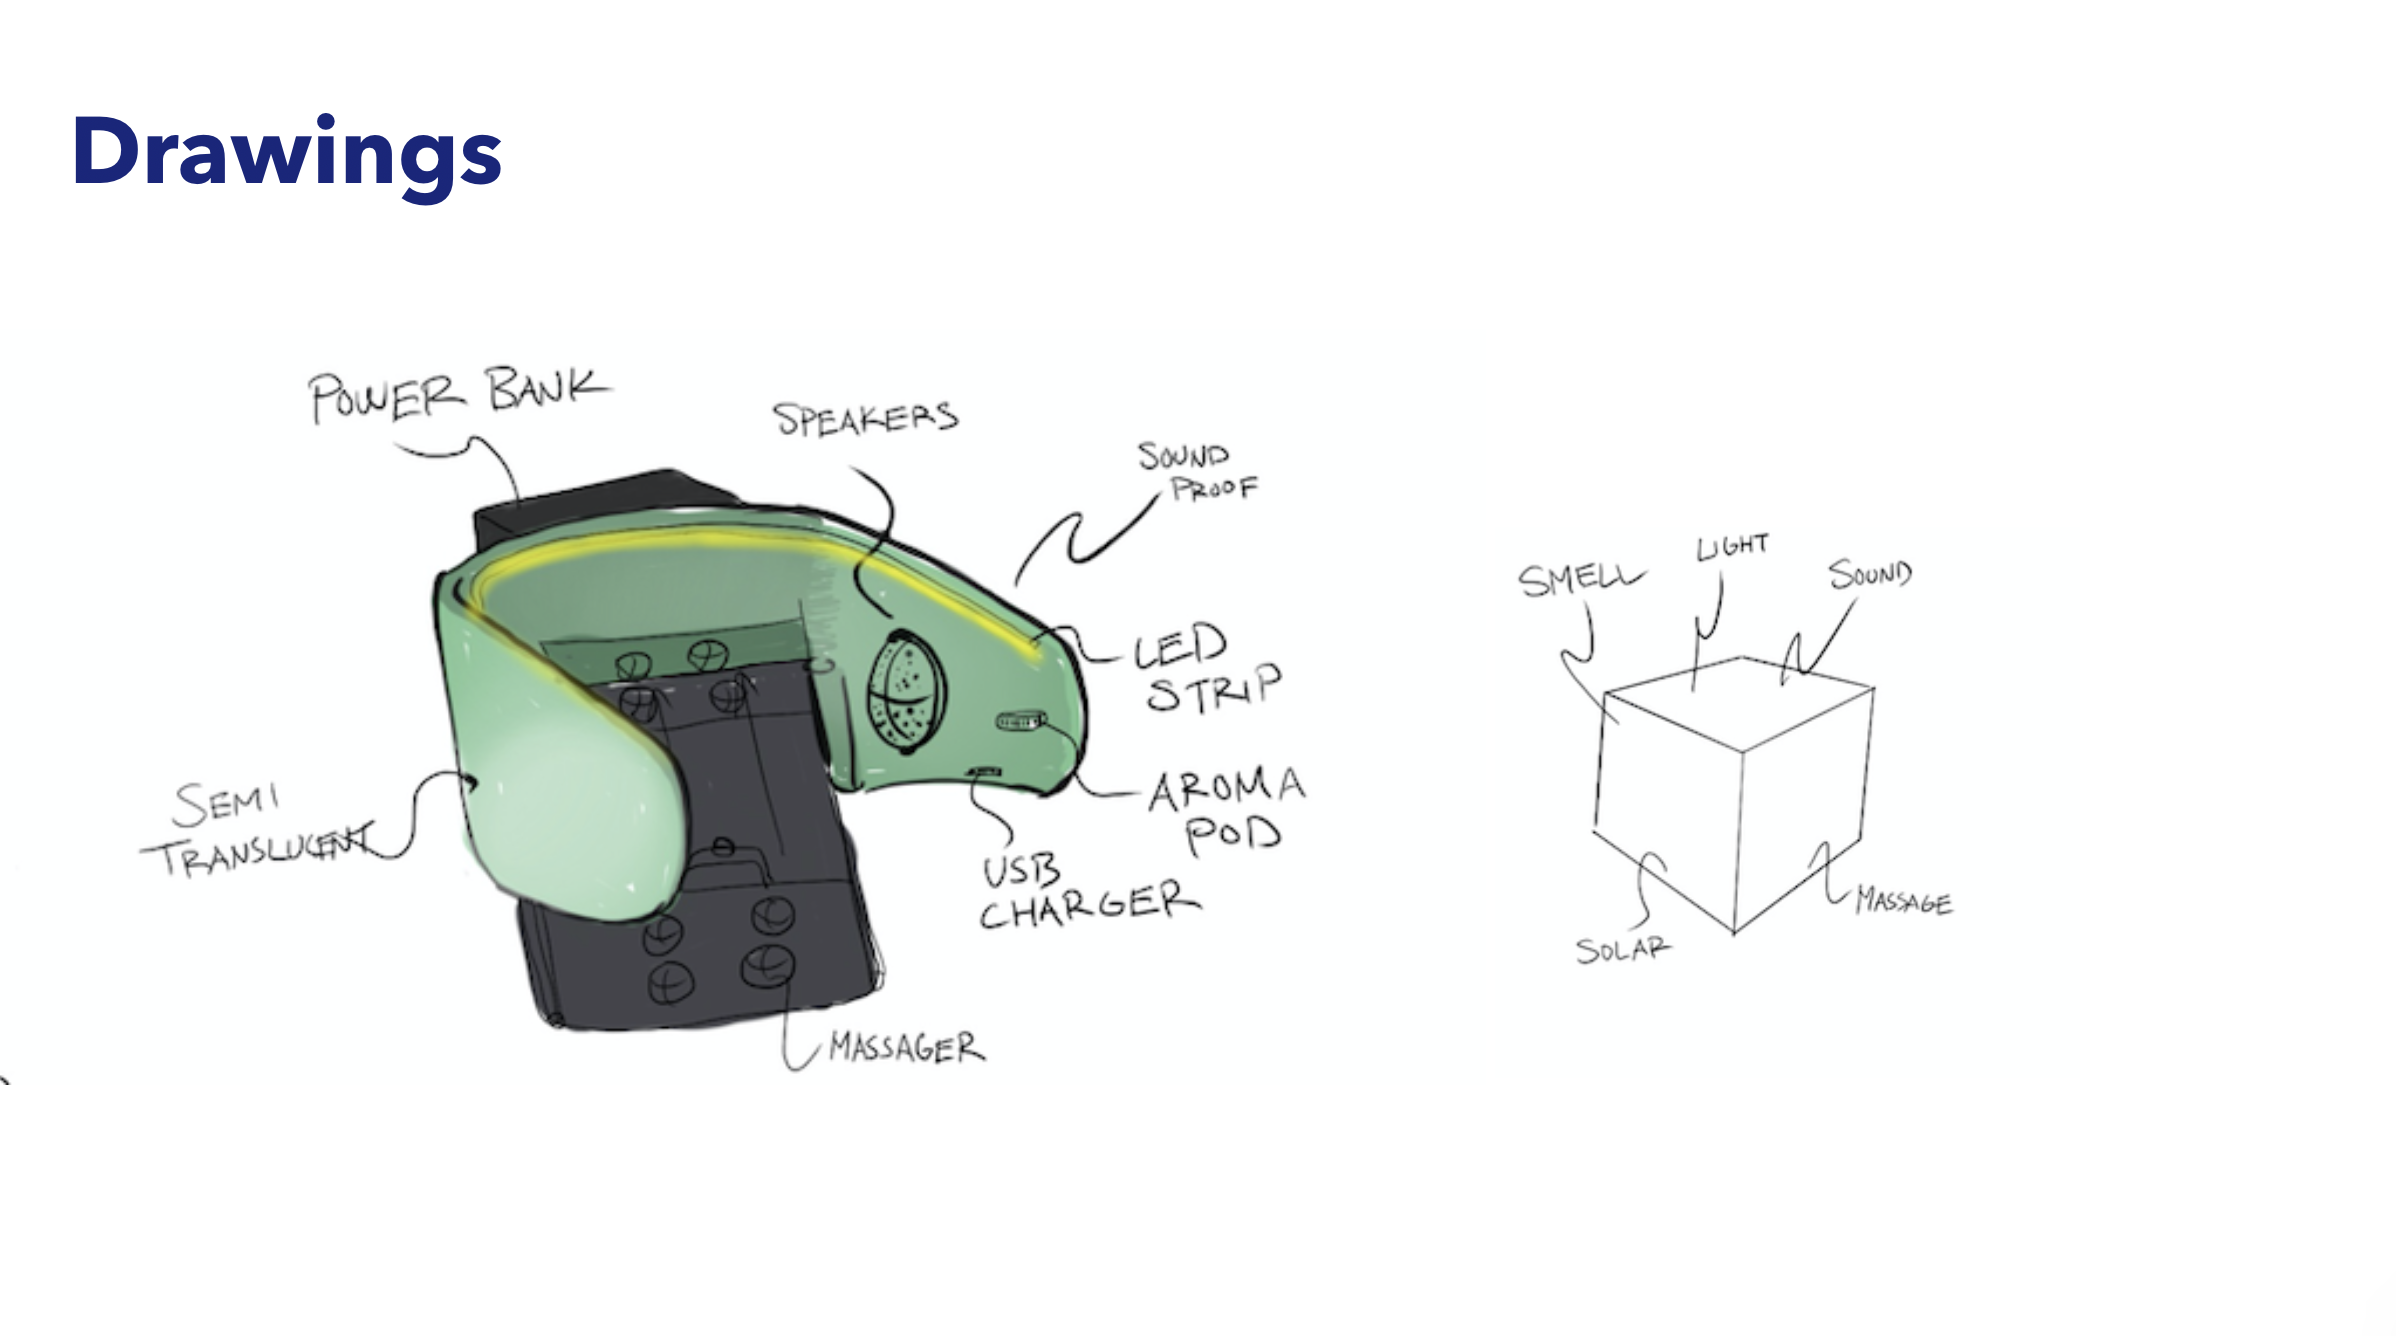 Drawings
POWER BANK
SPEAKERS
SOUND
PROOF
LED
STRIP
AROMA
POD
USB
CHARGER
SEMI
TRANSLUCENT
MASSAGER
SMELL
LIGHT
SOUND
SOLAR
MASSAGE